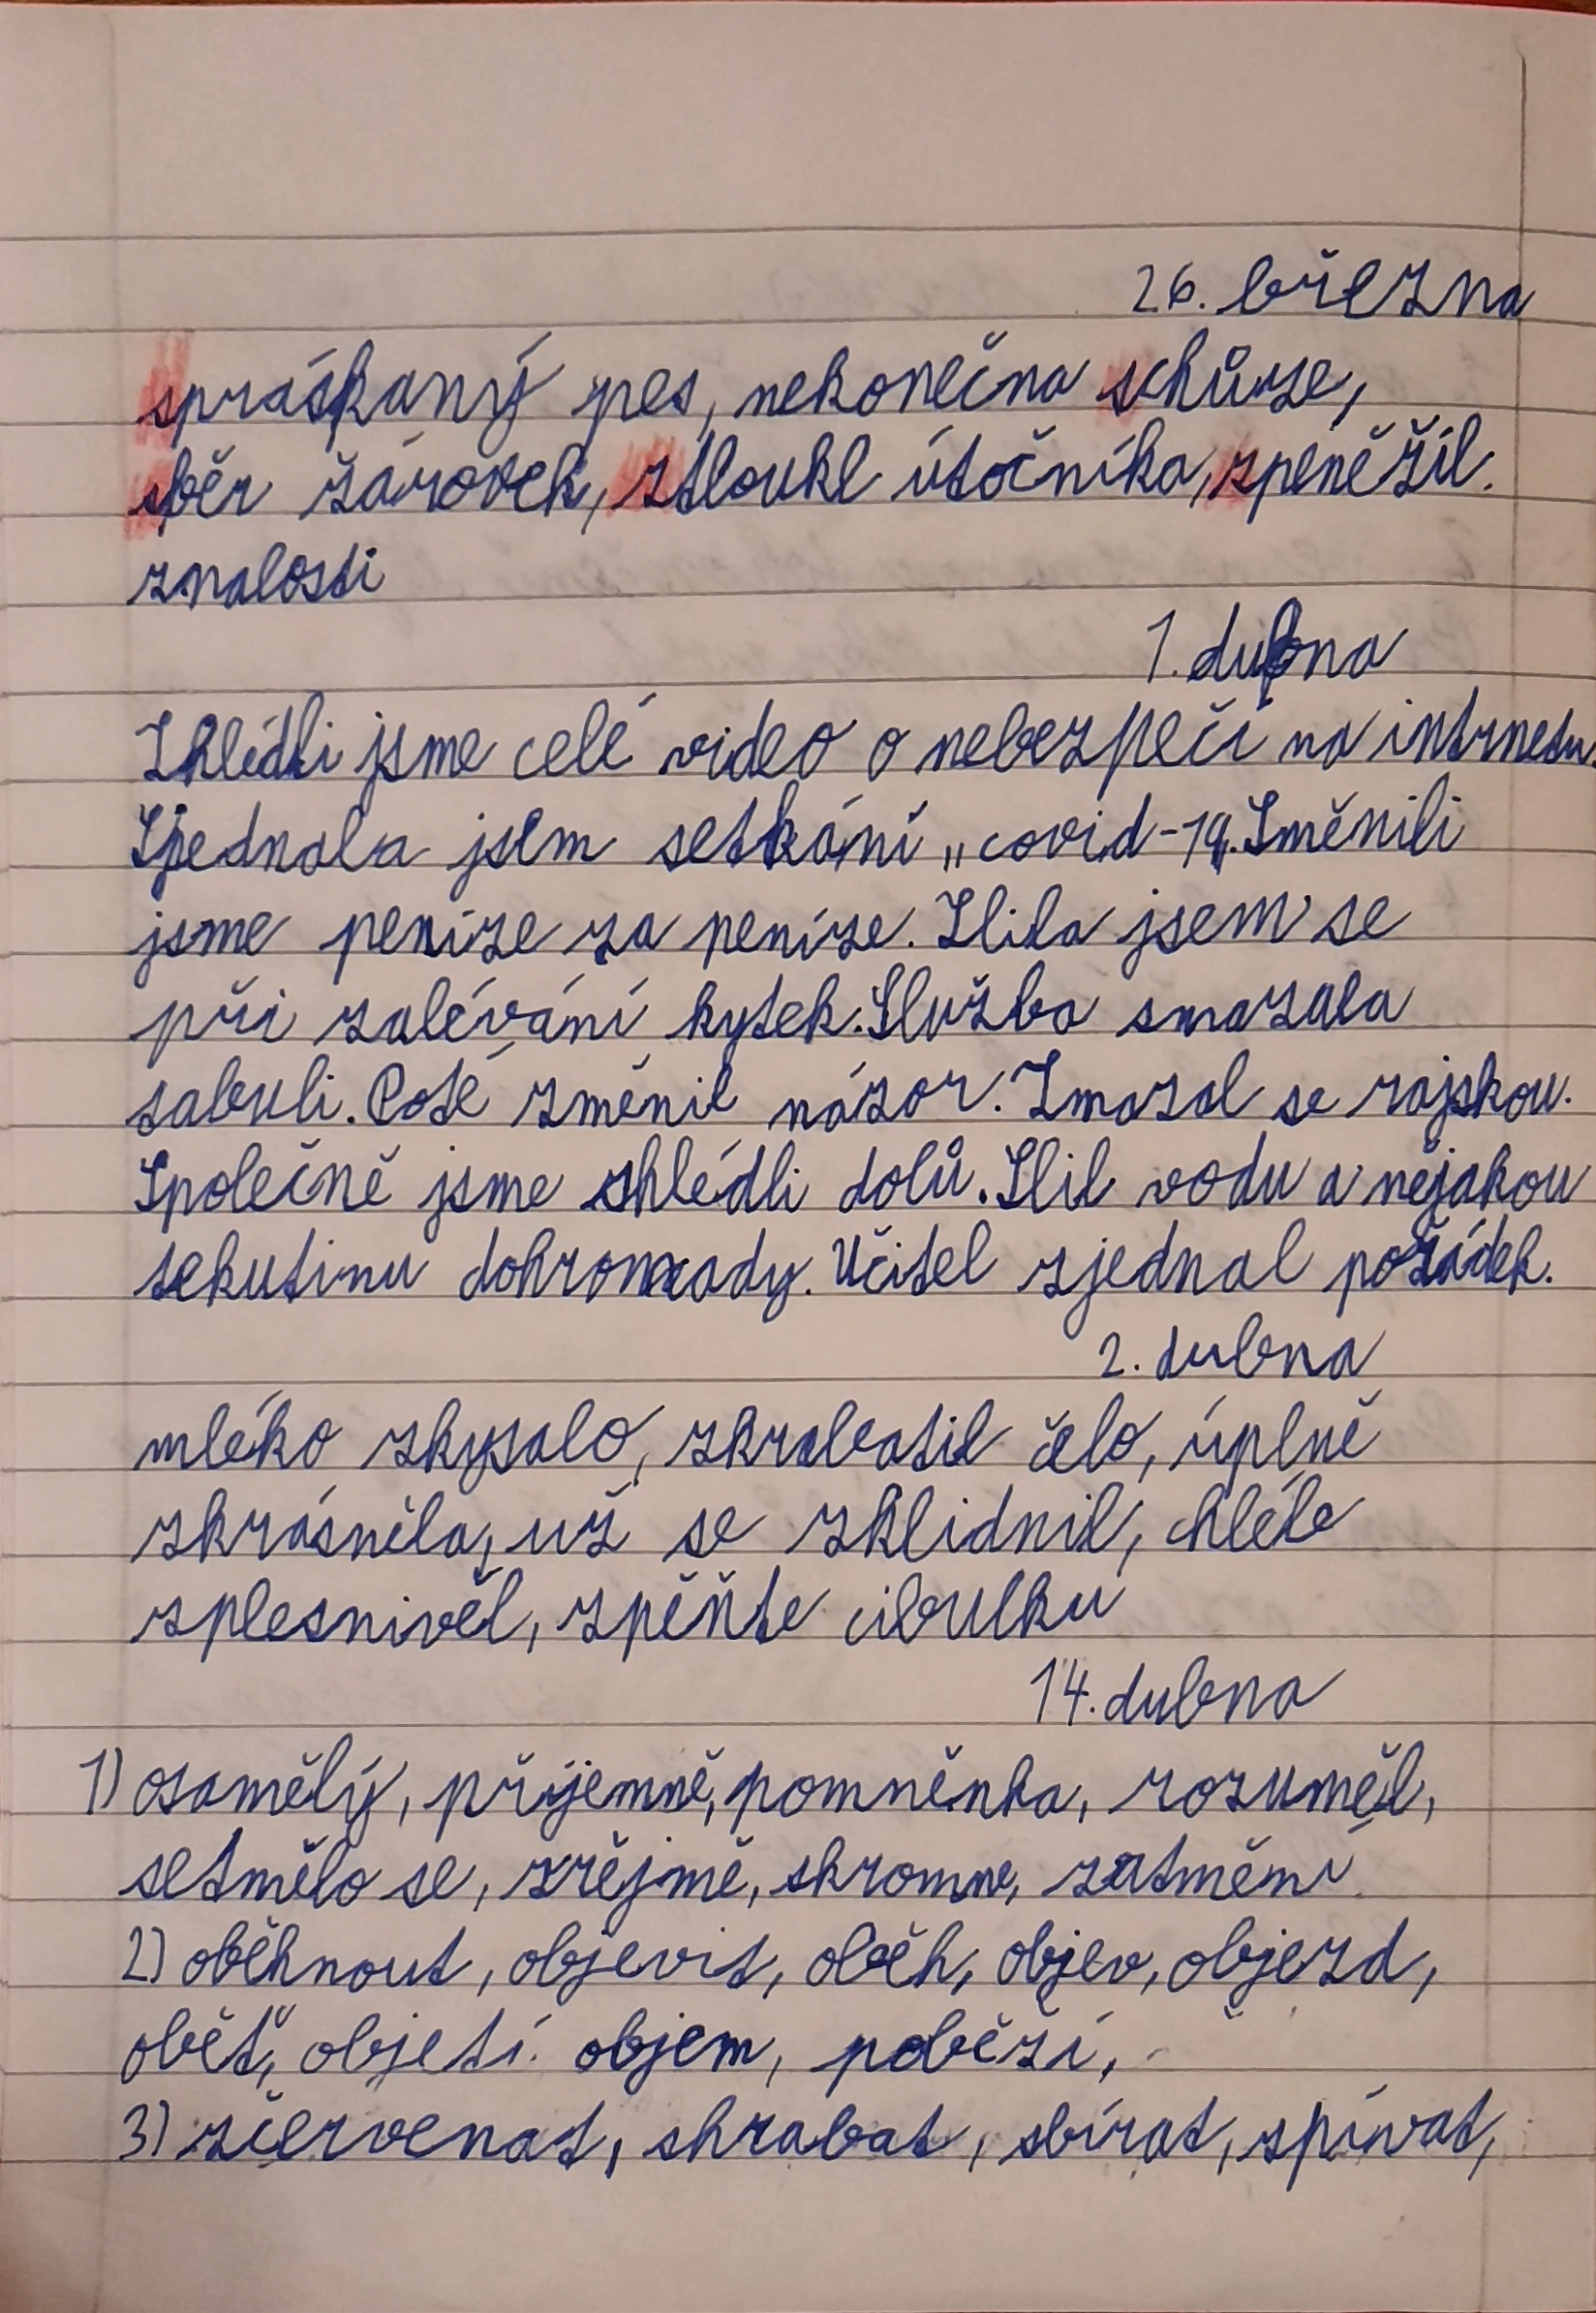 26. března
spráskaný pes, nekonečna schůze,
sběr žárovek, ztloukl útočníka, zpeněžil.
znalosti
1. dubna
Zhlédli jsme celé video o nebezpečí na intrnetu.
Sjednala jsem setkání „covid-19. Směnili
jsme peníze za peníze. Slila jsem se
při zalévání kytek. Služba smazala
tabuli. Poté změnil názor. Zmazal se rajskou.
Společně jsme shlédli dolů. Slil vodu a nějakou
tekutinu dohromady. Učitel zjednal pořádek.
2. dubna
mléko zkysalo, zkrabatil čelo, úplně
zkrásněla, už se zklidnil, chléb
zplesnivěl, zpěňte cibulku
14. dubna
1) osamělý, příjemně, pomněnka, rozuměl,
setmělo se, zřejmě, skromne, zatmění
2) oběhnout, objevit, oběh, objev, objezd,
oběť, objetí. objem, poběží,
3) zčervenat, shrabat, sbírat, zpívat,